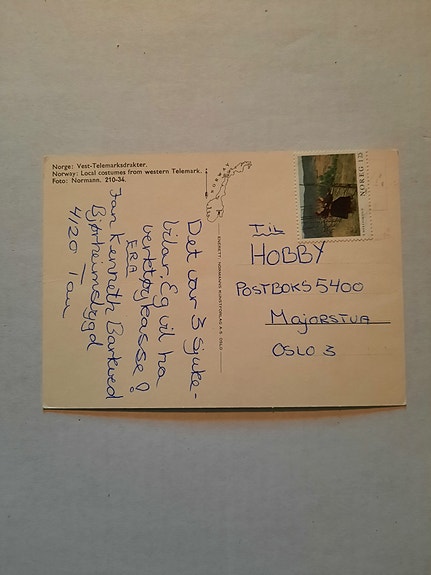 Norge: Vest-Telemarksdrakter.
Norway: Local costumes from western Telemark.
Foto: Normann. 210-34.
Det var 3 sjuke-
bilar. Eg vil ha
verktøykasse!
FRA
Jan Kenneth Barkved
Bjørheimsbygd
4120 Tau
NORWAY
ENERETT: NORMANNS KUNSTFORLAG A.S. OSLO
NOREG 125
Til
HOBBY
POSTBOKS 5400
MAJORSTUA
OSLO 3